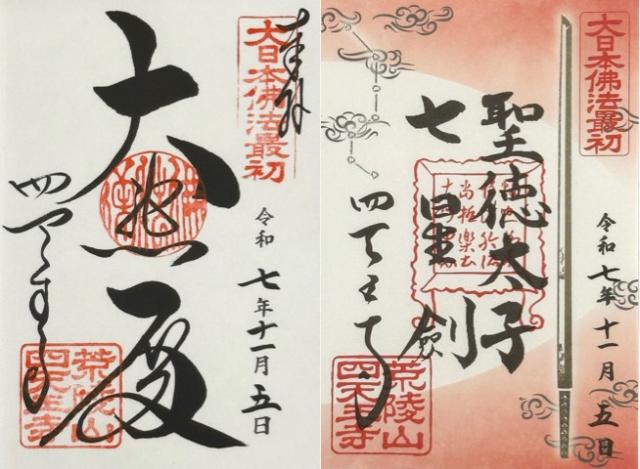 奉拝
大日本佛法最初
令和七年十一月五日
大悲殿
四天王寺
荒陵山
四天王寺
大日本佛法最初
令和七年十一月五日
聖徳太子
七星剣
四天王寺
荒陵山
四天王寺